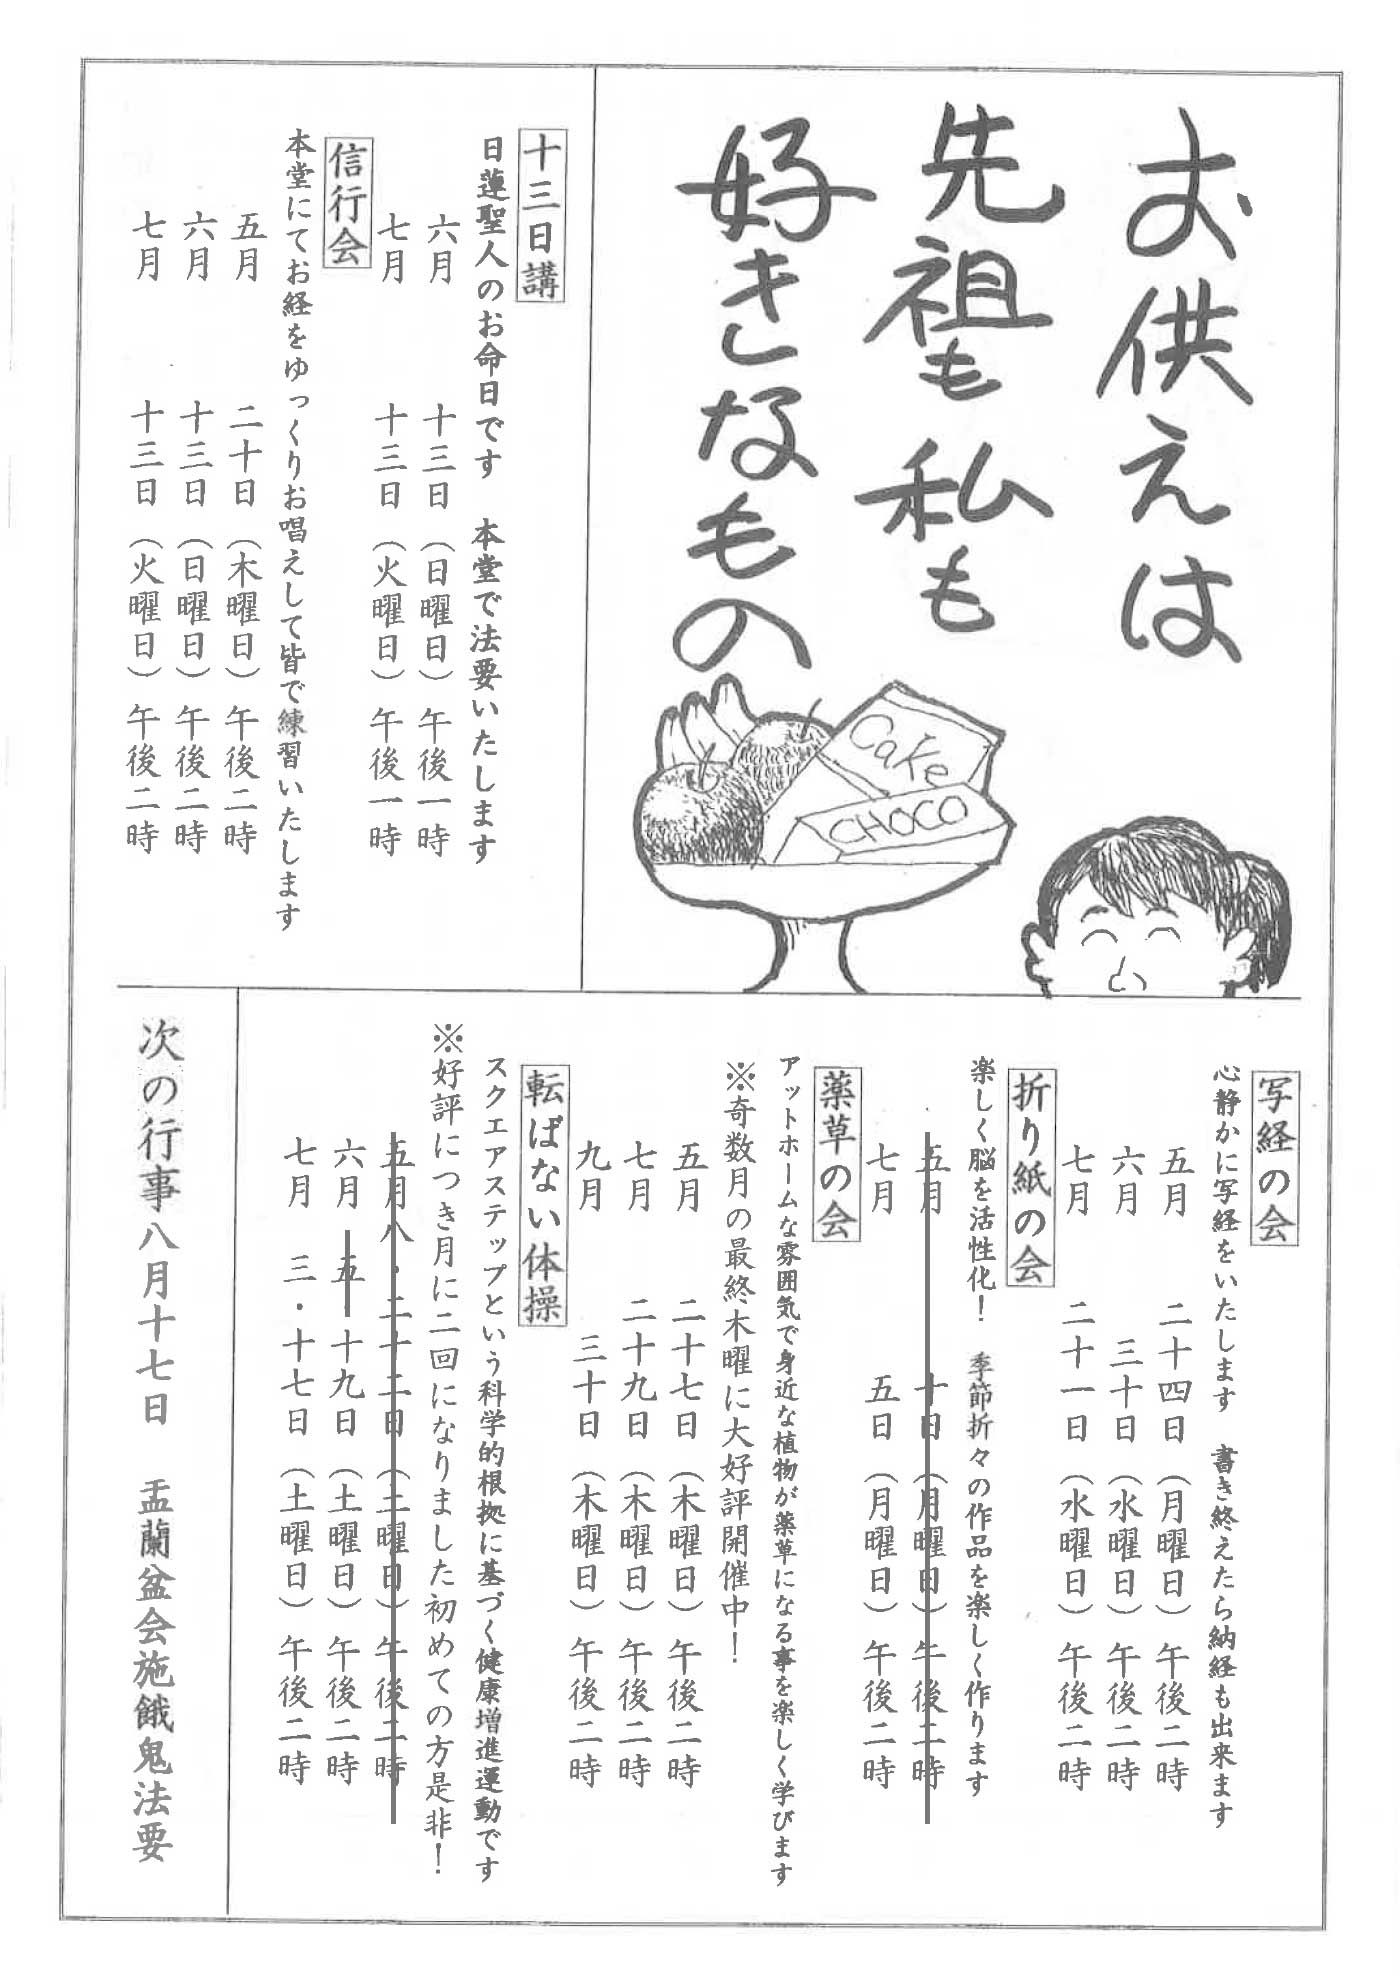 お供えは
先祖も私も
好きなもの
Cake
CHOCO
十三日講
日蓮聖人のお命日です 本堂で法要いたします
六月 十三日（日曜日）午後一時
七月 十三日（火曜日）午後一時
信行会
本堂にてお経をゆっくりお唱えして皆で練習いたします
五月 二十日（木曜日）午後二時
六月 十三日（日曜日）午後二時
七月 十三日（火曜日）午後二時
写経の会
心静かに写経をいたします 書き終えたら納経も出来ます
五月 二十四日（月曜日）午後二時
六月 三十日（水曜日）午後二時
七月 二十一日（水曜日）午後二時
折り紙の会
楽しく脳を活性化！ 季節折々の作品を楽しく作ります
五月 十日（月曜日）午後二時
七月 五日（月曜日）午後二時
薬草の会
アットホームな雰囲気で身近な植物が薬草になる事を楽しく学びます
※奇数月の最終木曜に大好評開催中！
五月 二十七日（木曜日）午後二時
七月 二十九日（木曜日）午後二時
九月 三十日（木曜日）午後二時
転ばない体操
スクエアステップという科学的根拠に基づく健康増進運動です
※好評につき月に二回になりました初めての方是非！
五月八・二十二日（土曜日）午後二時
六月 五 十九日（土曜日）午後二時
七月 三・十七日（土曜日）午後二時
次の行事八月十七日 盂蘭盆会施餓鬼法要